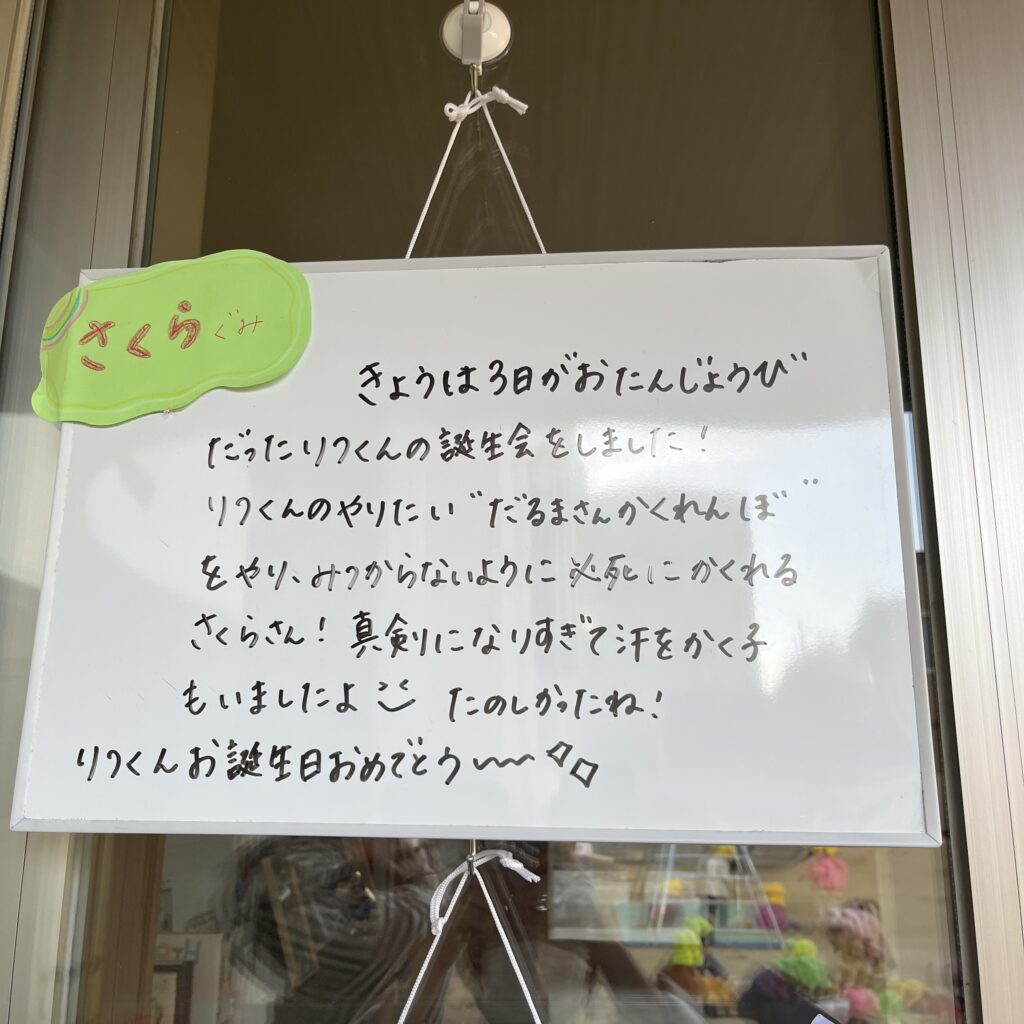 さくらぐみ
きょうは3日がおたんじょうび
だったりつくんの誕生会をしました!
りつくんのやりたい"だるまさんかくれんぼ"
をやり、みつからないように必死にかくれる
さくらさん!真剣になりすぎて汗をかく子
もいましたよ たのしかったね!
りつくんお誕生日おめでとう〜〜